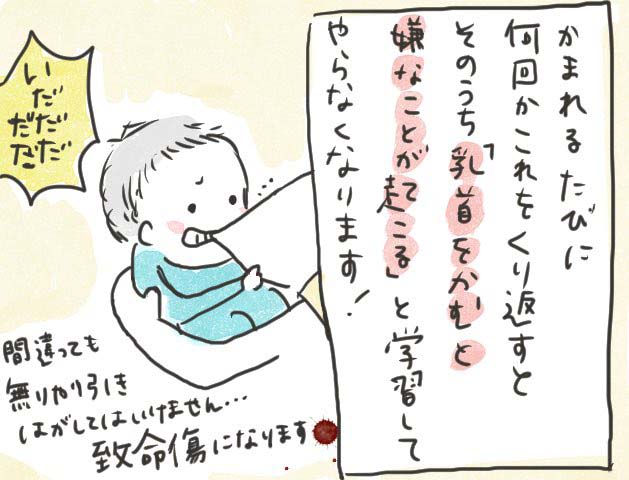 かまれるたびに
何回かこれをくり返すと
そのうち「乳首をかむと
嫌なことが起こる」と学習して
やらなくなります!
いだ
だだ
だだ
間違っても
無りやり引き
はがしてはいけません…
致命傷になります